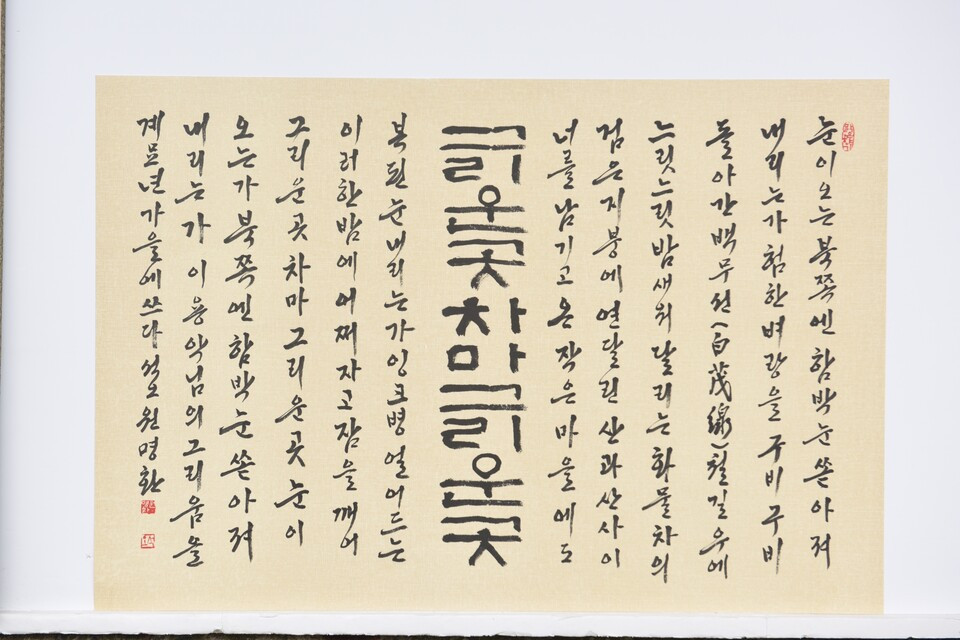 눈이오는북쪽엔함박눈쏟아져
내리는가험한벼랑을구비구비
돌아간백무선(白茂線)철길우에
느릿느릿밤새워달리는화물차의
검은지붕에연달린산과산사이
너를남기고온작은마을에도
그리운곳차마그리운곳
복된눈내리는가잉크병얼어드는
이러한밤에어쩌자고잠을깨어
그리운곳차마그리운곳눈이
오는가북쪽엔함박눈쏟아져
내리는가이용악님의그리움을
계묘년가을에쓰다석오원명환